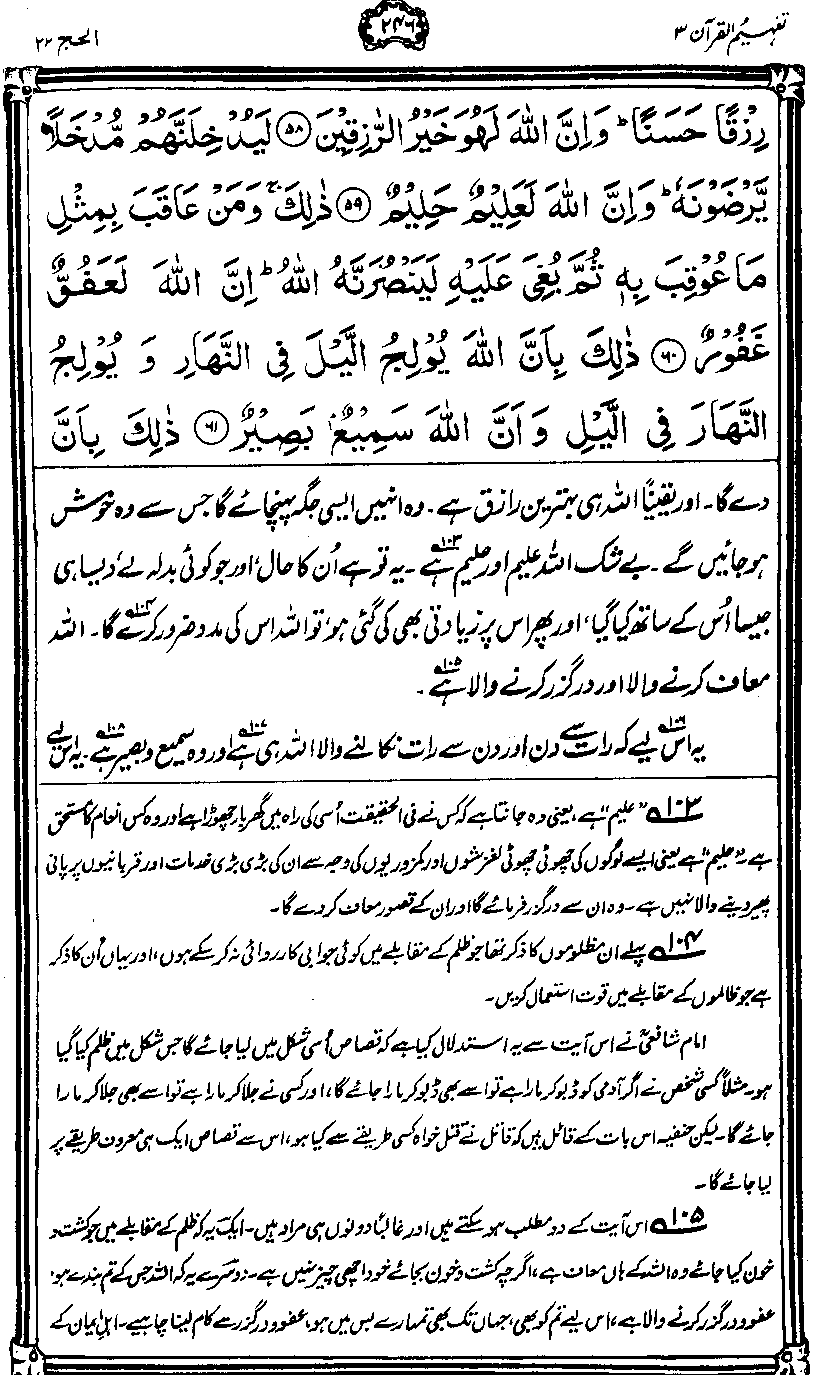 تفہیم القرآن ۳
۲۴۶
الحج ۲۲
رِزْقًا حَسَنًا ؕ وَاِنَّ اللّٰهَ لَهُوَ خَيْرُ الرّٰزِقِيْنَ ﴿۵۸﴾ لَيُدْخِلَنَّهُمْ مُّدْخَلًا
يَّرْضَوْنَهٗ ؕ وَاِنَّ اللّٰهَ لَعَلِيْمٌ حَلِيْمٌ ﴿۵۹﴾ ذٰلِكَ ۚ وَمَنْ عَاقَبَ بِمِثْلِ
مَا عُوْقِبَ بِهٖ ثُمَّ بُغِىَ عَلَيْهِ لَيَنْصُرَنَّهُ اللّٰهُ ؕ اِنَّ اللّٰهَ لَعَفُوٌّ
غَفُوْرٌ ﴿۶۰﴾ ذٰلِكَ بِاَنَّ اللّٰهَ يُوْلِجُ الَّيْلَ فِى النَّهَارِ وَ يُوْلِجُ
النَّهَارَ فِى الَّيْلِ وَاَنَّ اللّٰهَ سَمِيْعٌۢ بَصِيْرٌ ﴿۶۱﴾ ذٰلِكَ بِاَنَّ
دے گا۔ اور یقیناً اللہ ہی بہترین رازق ہے۔ وہ انہیں ایسی جگہ پہنچائے گا جس سے وہ خوش
ہوجائیں گے۔ بے شک اللہ علیم اور حلیم ہے۱۰۳۔ یہ تو ہے اُن کا حال، اور جو کوئی بدلہ لے، ویسا ہی
جیسا اُس کے ساتھ کیا گیا، اور پھر اس پر زیادتی بھی کی گئی ہو، تو اللہ اس کی مدد ضرور کرے گا۱۰۴۔ اللہ
معاف کرنے والا اور درگزر کرنے والا ہے۱۰۵۔
یہ اس۱۰۶ لیے کہ رات سے دن اور دن سے رات نکالنے والا اللہ ہی ہے۱۰۷ اور وہ سمیع و بصیر ہے۱۰۸۔ یہ اس لیے
۱۰۳ ”علیم“ ہے، یعنی وہ جانتا ہے کہ کس نے فی الحقیقت اُسی کی راہ میں گھر بار چھوڑا ہے اور وہ کس انعام کا مستحق
ہے۔ ”حلیم“ ہے یعنی ایسے لوگوں کی چھوٹی چھوٹی لغزشوں اور کمزوریوں کی وجہ سے ان کی بڑی بڑی خدمات اور قربانیوں پر پانی
پھیر دینے والا نہیں ہے۔ وہ ان سے درگزر فرمائے گا اور ان کے قصور معاف کر دے گا۔
۱۰۴ پہلے ان مظلوموں کا ذکر تھا جو ظلم کے مقابلے میں کوئی جوابی کارروائی نہ کر سکے ہوں، اور یہاں اُن کا ذکر
ہے جو ظالموں کے مقابلے میں قوت استعمال کریں۔
امام شافعیؒ نے اس آیت سے یہ استدلال کیا ہے کہ قصاص اُسی شکل میں لیا جائے گا جس شکل میں ظلم کیا گیا
ہو۔ مثلاً کسی شخص نے اگر آدمی کو ڈبو کر مارا ہے تو اسے بھی ڈبو کر مارا جائے گا، اور کسی نے جلا کر مارا ہے تو اسے بھی جلا کر مارا
جائے گا۔ لیکن حنفیہ اس بات کے قائل ہیں کہ قاتل نے قتل خواہ کسی طریقے سے کیا ہو، اس سے قصاص ایک ہی معروف طریقے پر
لیا جائے گا۔
۱۰۵ اس آیت کے دو مطلب ہو سکتے ہیں اور غالباً دونوں ہی مراد ہیں۔ ایک یہ کہ ظلم کے مقابلے میں جو کشت و
خون کیا جائے وہ اللہ کے ہاں معاف ہے، اگرچہ کشت و خون بجائے خود اچھی چیز نہیں ہے۔ دوسرے یہ کہ اللہ جس کے تم بندے ہو،
عفو و درگزر کرنے والا ہے، اس لیے تم کو بھی، جہاں تک بھی تمہارے بس میں ہو، عفو و درگزر سے کام لینا چاہیے۔ اہلِ ایمان کے